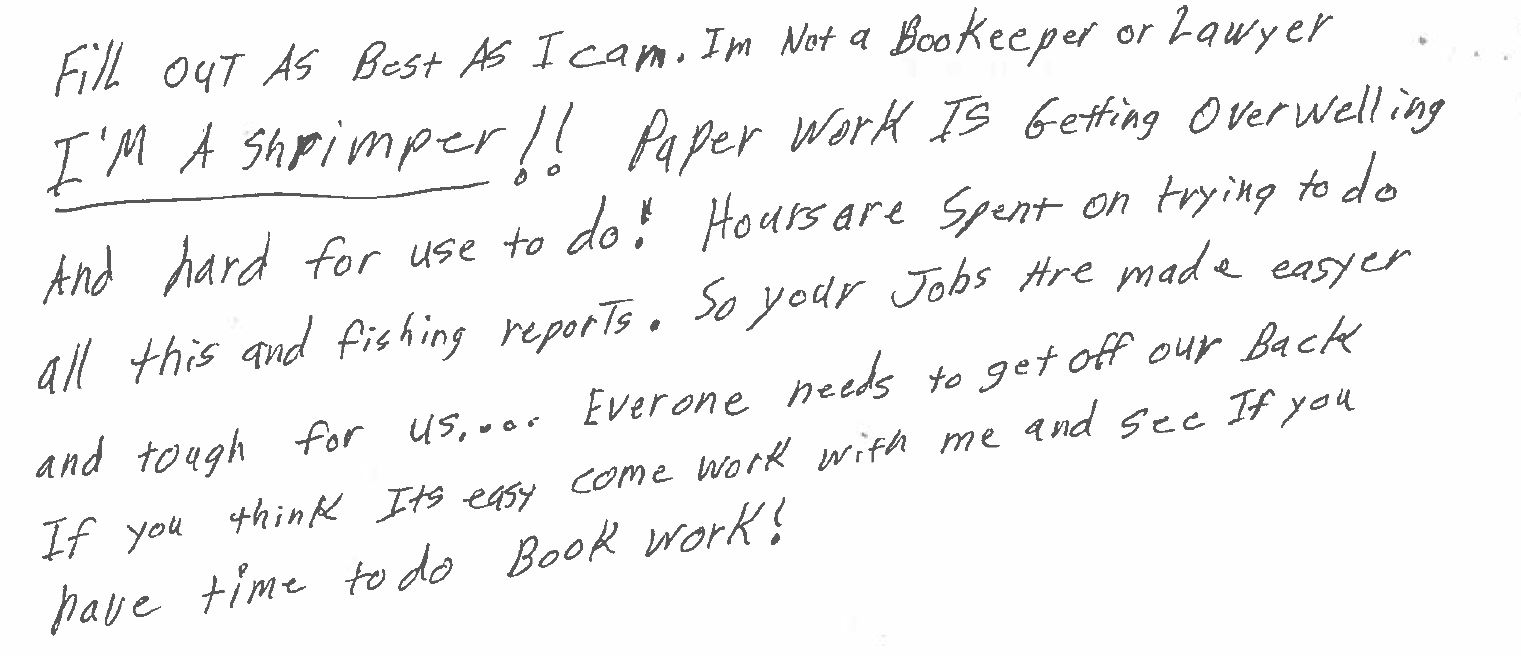 Fill OUT AS Best AS I cam. Im Not a Bookeeper or Lawyer
I'M A Shrimper!! Paper Work IS Getting Overwelling
And hard for use to do! Hours are Spent on trying to do
all this and fishing reports. So your Jobs Are made easyer
and tough for us.... Everone needs to get off our Back
If you think Its easy come work with me and see If you
have time to do Book work!